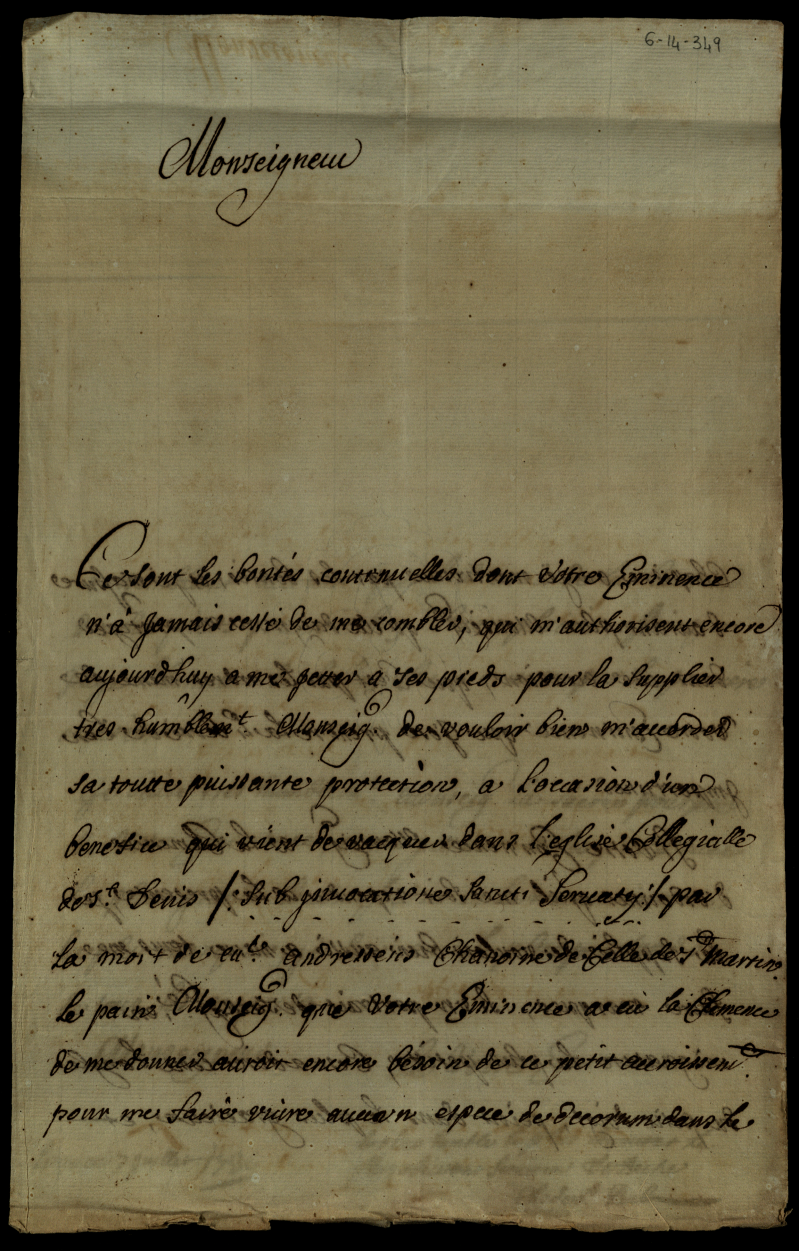 6-14-349
Monseigneur
Ce sont les bontés contenuelles dont votre Eminence
n'a jamais cessé de me combler, qui m'authorisent encore
aujourd'huy a me jetter a ses pieds pour la supplier
tres humblemt. Monseig. de vouloir bien m'accorder
sa toutte puissante protection, a l'occasion d'un
benefice qui vient de vacquer dans l'eglise Collegialle
de St. Denis /: sub jnvocatione Sancti Servatÿ :/ par
la mort de andressens Chanoine de Celle de St Martin.
le pain Monseig. que Votre Eminence a eu la Clemence
de me donner auroit encore bésoin de ce petit accroissemt.
pour me faire vivre aucun espece de decorum dans le